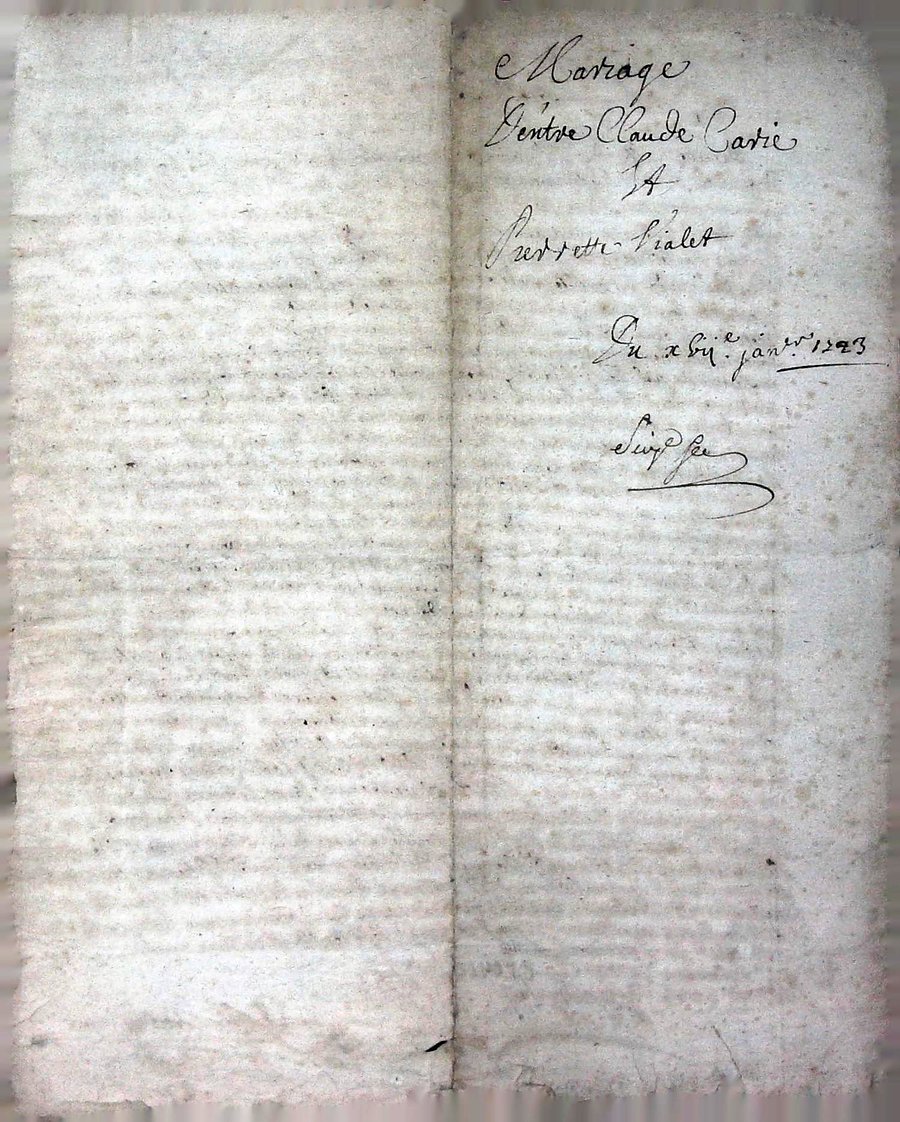 Mariage
D'entre Claude Carie
Et
Pierrette Vialet
Du xvije. janer. 1723